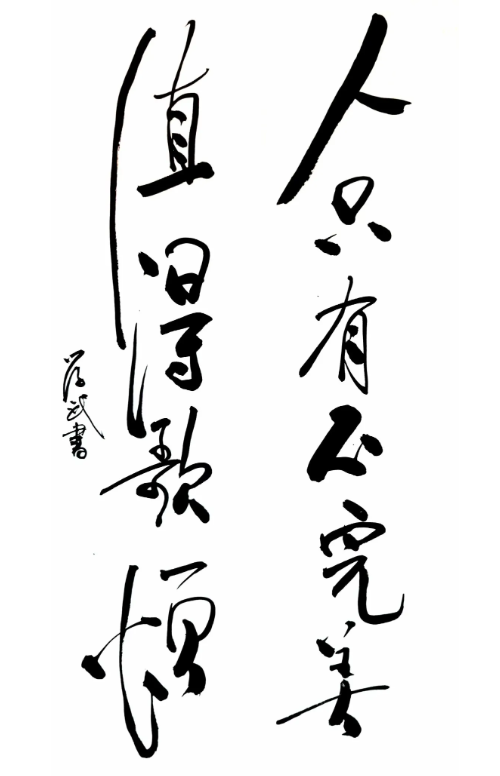 人只有不完美
值得歌颂
武書